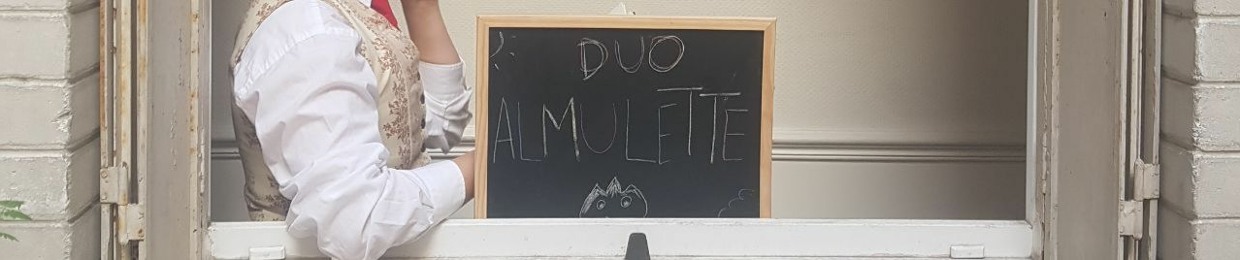 DUO
ALMULETTE